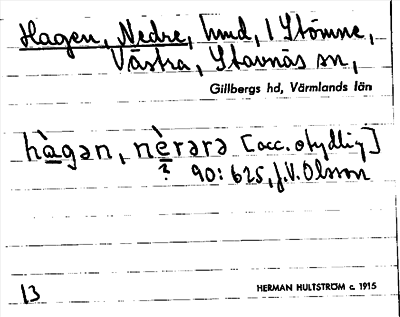 Hagen, Nedre, hmd, i Stömne,
Västra, Stavnäs sn,
Gillbergs hd, Värmlands län
hàgən, nèrərə [acc. otydlig]
? 90: 625, J.V. Olsson
13
HERMAN HULTSTRÖM c. 1915